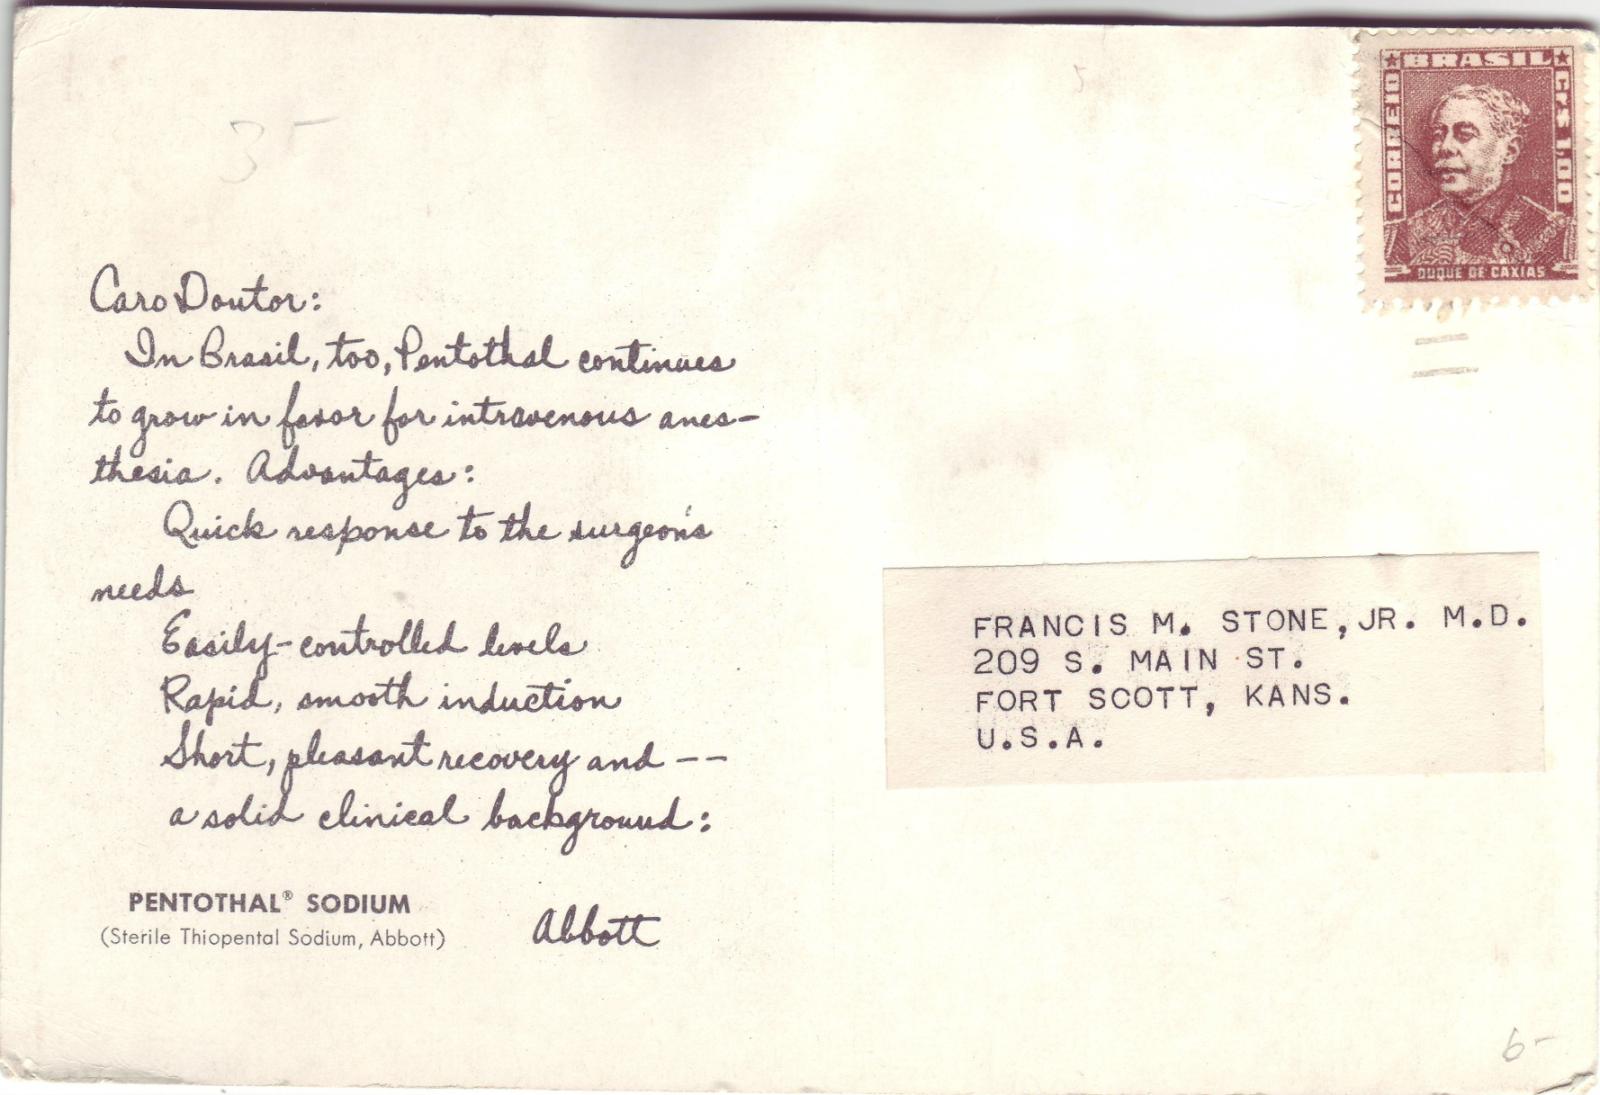 3-
5
★BRASIL★
CORREIO
Cr$ 1,00
DUQUE DE CAXIAS
Caro Doutor:
In Brasil, too, Pentothal continues
to grow in favor for intravenous anes-
thesia. Advantages:
Quick response to the surgeon's
needs
Easily-controlled levels
Rapid, smooth induction
Short, pleasant recovery and --
a solid clinical background:
PENTOTHAL® SODIUM
(Sterile Thiopental Sodium, Abbott)
Abbott
FRANCIS M. STONE, JR. M.D.
209 S. MAIN ST.
FORT SCOTT, KANS.
U.S.A.
6-